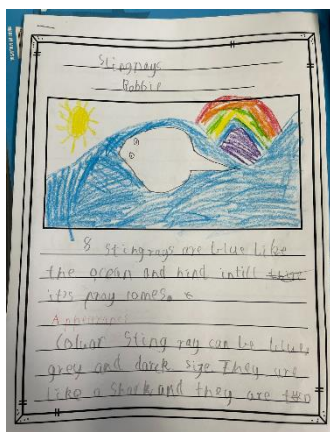 Stingrays
Bobbie
8 Stingrays are blue like
the ocean and hind intill
its pray comes.
Appearance
Coluor Sting ray can be blue,
grey and darck size They are
like a shack and they are